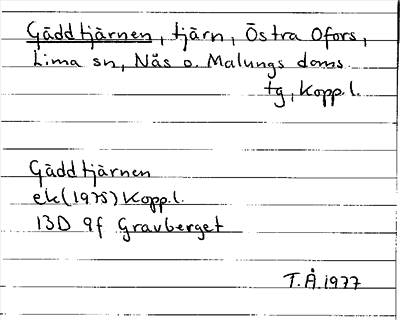 Gäddtjärnen, tjärn, Östra Ofors,
Lima sn, Näs o. Malungs doms.
tg, Kopp.l.
Gäddtjärnen
ek(1975) Kopp.l.
13D 9f Gravberget
T.Å.1977